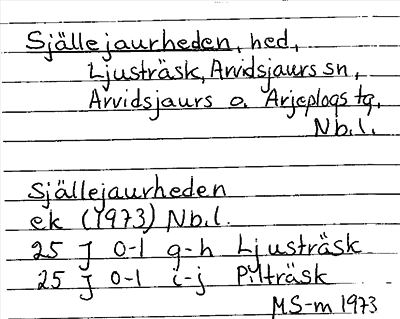 Själlejaurheden, hed,
Ljusträsk, Arvidsjaurs sn,
Arvidsjaurs o. Arjeplogs tg.
Nb.l.
Själlejaurheden
ek (1973) Nb.l.
25 J 0-1 g-h Ljusträsk
25 J 0-1 i-j Pilträsk
MS-m 1973